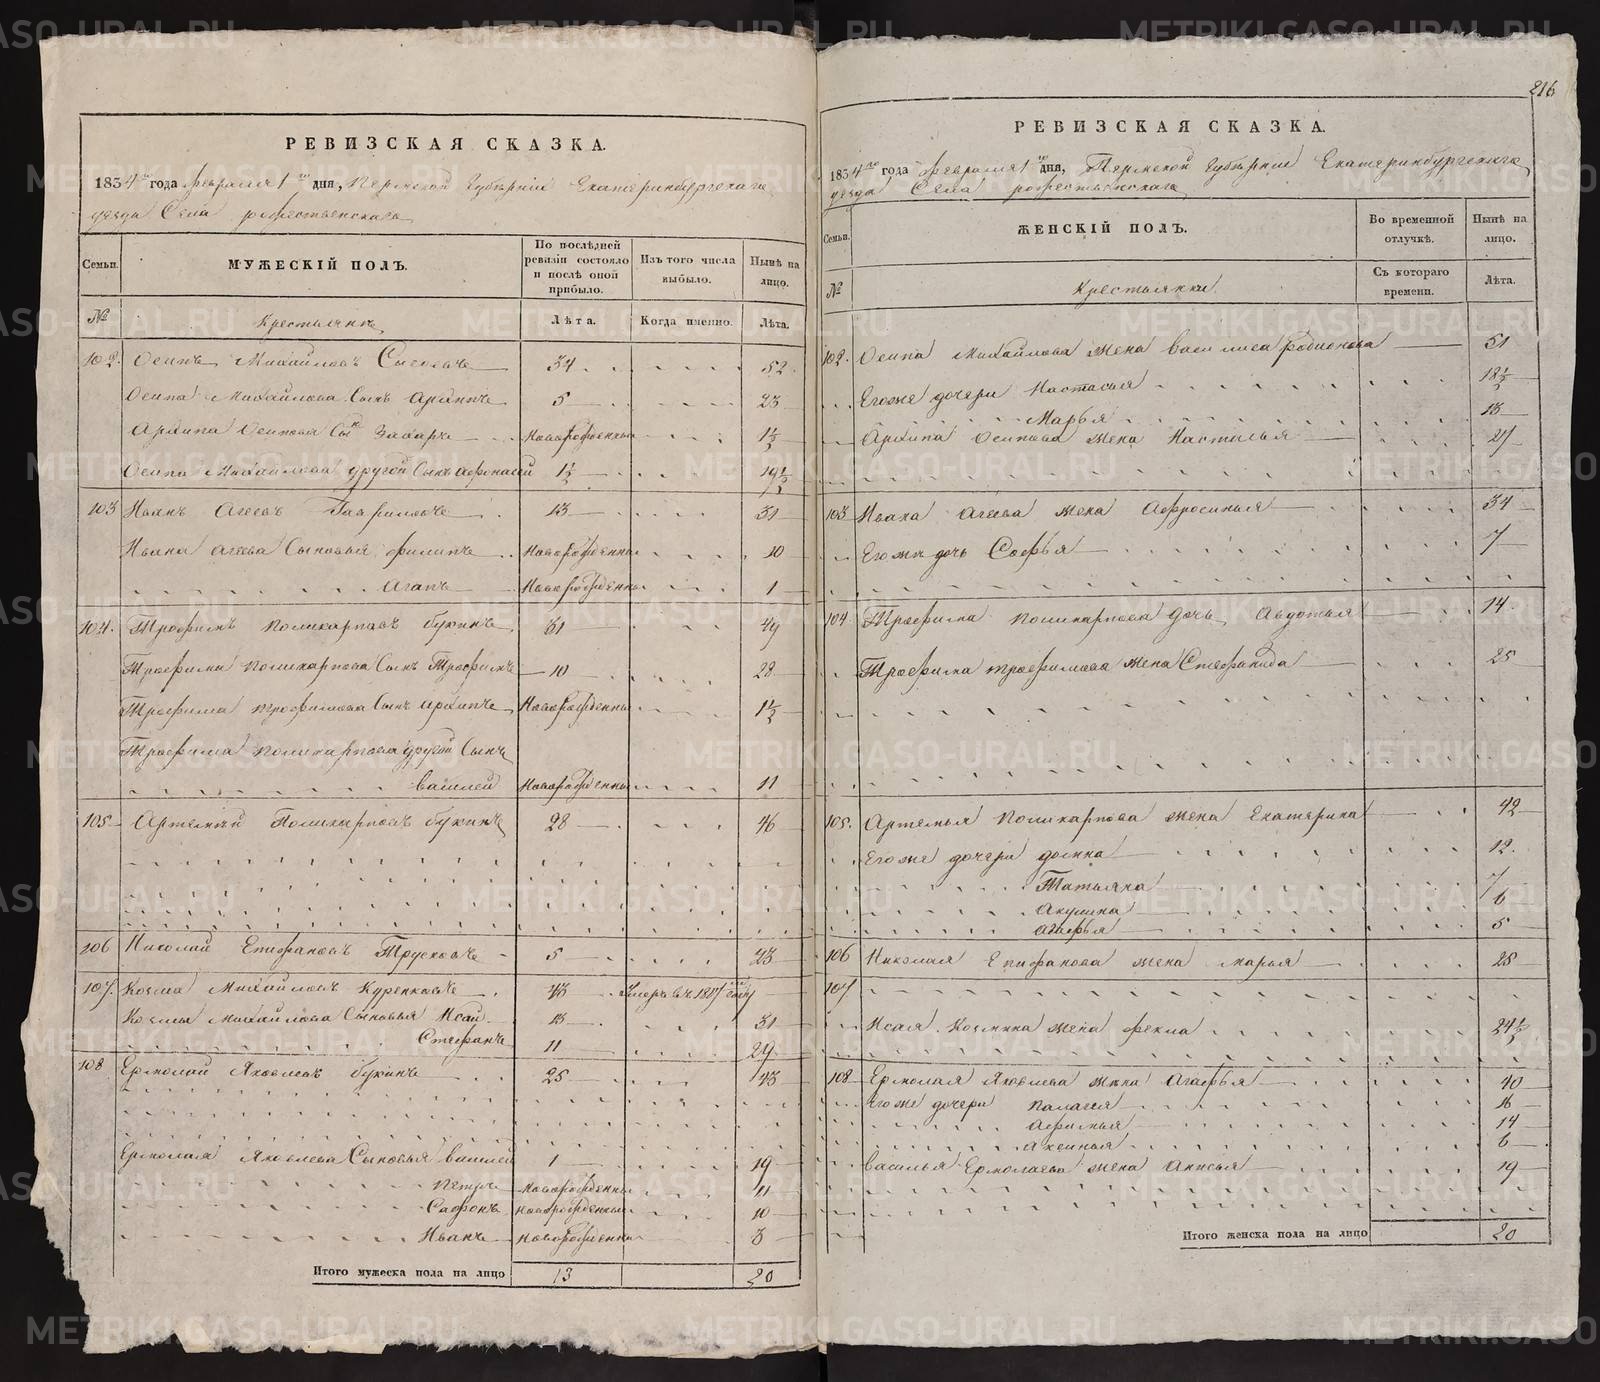 РЕВИЗСКАЯ СКАЗКА.
1834го года февраля 1го дня, Пермской Губернiи Екатеринбургскаго
уезда Села рождественскаго
Семьи. МУЖЕСКIЙ ПОЛЪ. По послѣдней ревизiи состояло и послѣ оной прибыло. Изъ того числа выбыло. Нынѣ на лицо.
№ Крестьянъ Лѣта. Когда именно. Лѣта.
102. Осипъ Михайловъ 34 52
Осипа Михайлова Сынъ Архипъ 5 23
Архипа Осипова Сы Захаръ Новорожденны 1½
Осипа Михайлова другой Сынъ Афонасей 1½ 19½
103 Иванъ Агеевъ Гавриловъ 13 31
Ивана Агеева Сыновья Филипъ Новорожденны 10
Агапъ Новорожденны 1
104. Трофимъ Поликарповъ букинъ 31 49
Трофима Поликарпова Сынъ Трофимъ 10 28
Трофима трофимова Сынъ Архипъ Новорожденны 1½
Трофима Поликарпова другой Сынъ
василей Новорожденны 11
105 Артемiй Поликарповъ букинъ 28 46
106 Николай Епифановъ Трусковъ 5 23
107. Козма Михайловъ Куренковъ 43 Умеръ въ 1817м году
Козмы Михайлова Сыновья Исай 13 31
Стефанъ 11 29
108 Ермолай Яковлевъ букинъ 25 43
Ермолая Яковлева Сыновья василей 1 19
Петръ Новорожденны 11
Сафонъ Новорожденны 10
Иванъ Новорожденны 3
Итого мужеска пола на лицо 13 20
216
РЕВИЗСКАЯ СКАЗКА.
1834го года февраля 1го дня, Пермской Губернiи Екатеринбургскаго
уезда Села рождественскаго
Семьи. ЖЕНСКIЙ ПОЛЪ. Во временной отлучкѣ. Нынѣ на лицо.
№ Крестьянки Съ котораго времени. Лѣта.
102. Осипа Михайлова Жена василиса родионова 51
Егоже дочери Настасья 18½
Марья 13
Архипа Осипова жена Настасья 27
103 Ивана Агеева жена Афросинья 34
Егоже дочь Софья 7
104 Трофима Поликарпова дочь Авдотья 14.
Трофима трофимова жена Стефанида 25
105. Артемья Поликарпова жена Екатерина 42
Егоже дочери домна 12.
Татьяна 7
Акулина 6
Агафья 5
106 Николая Епифанова жена марья 25
107
Исая Козмина жена фекла 24½
108 Ермолая Яковлева жена Агафья 40
Егоже дочери Палагея 16
Афимья 14
Аксинья 6
василья Ермолаева жена Анисья 19
Итого женска пола на лицо 20
METRIKI.GASO-URAL.RU